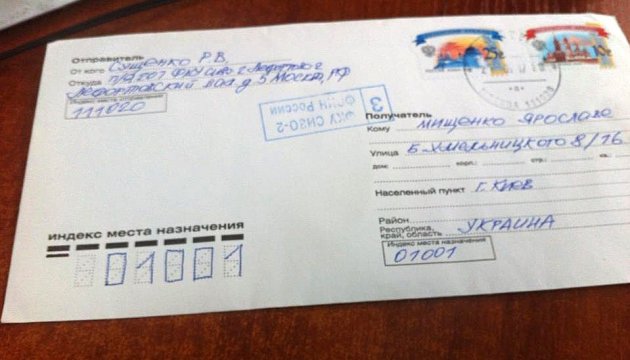 Отправитель
От кого Сущенко Р.В.
Откуда
Лефортовский вал д 5 Москва, РФ
Индекс места отправления
111020
3
ФКУ СИЗО-2
ФСИН России
25
Получатель
Кому Мищенко Ярослав
Улица Б-Хмельницкого 8/16
дом: корп.: стр.: кв.:
Населенный пункт г. Киев
Район
Республика,
край, область УКРАИНА
Индекс места назначения
01001
индекс места назначения
01001